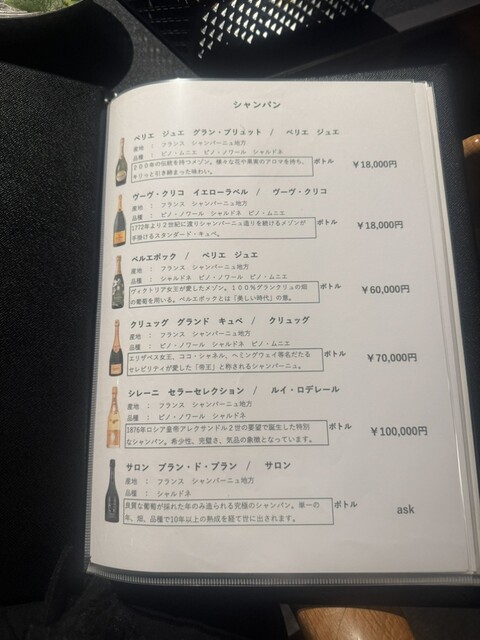 シャンパン
ペリエ ジュエ グラン・ブリュット / ペリエ ジュエ
産地 : フランス シャンパーニュ地方
品種 : ピノ・ムニエ ピノ・ノワール シャルドネ
２００年の伝統を持つメゾン。様々な花や果実のアロマを持ち、 ボトル ￥18,000円
キリっと引き締まった味わい。
ヴーヴ・クリコ イエローラベル / ヴーヴ・クリコ
産地 : フランス シャンパーニュ地方
品種 : ピノ・ノワール シャルドネ ピノ・ムニエ
1772年より２世紀に渡りシャンパーニュ造りを続けるメゾンが ボトル ￥18,000円
手掛けるスタンダード・キュベ。
ベルエポック / ペリエ ジュエ
産地 : フランス シャンパーニュ地方
品種 : シャルドネ ピノ・ノワール ピノ・ムニエ
ヴィクトリア女王が愛したメゾン。１００％グランクリュの畑 ボトル ￥60,000円
の葡萄を用いる。ベルエポックとは「美しい時代」の意。
クリュッグ グランド キュベ / クリュッグ
産地 : フランス シャンパーニュ地方
品種 : ピノ・ノワール シャルドネ ピノ・ムニエ
エリザベス女王、ココ・シャネル、ヘミングウェイ等名だたる ボトル ￥70,000円
セレビリティが愛した「帝王」と称されるシャンパーニュ。
シレーニ セラーセレクション / ルイ・ロデレール
産地 : フランス シャンパーニュ地方
品種 : ピノ・ノワール シャルドネ
1876年ロシア皇帝アレクサンドル２世の要望で誕生した特別 ボトル ￥100,000円
なシャンパン。希少性、完璧さ、気品の象徴となっています。
サロン ブラン・ド・ブラン / サロン
産地 : フランス シャンパーニュ地方
品種 : シャルドネ
良質な葡萄が採れた年のみ造られる究極のシャンパン。単一の ボトル ask
年、畑、品種で10年以上の熟成を経て世に出されます。